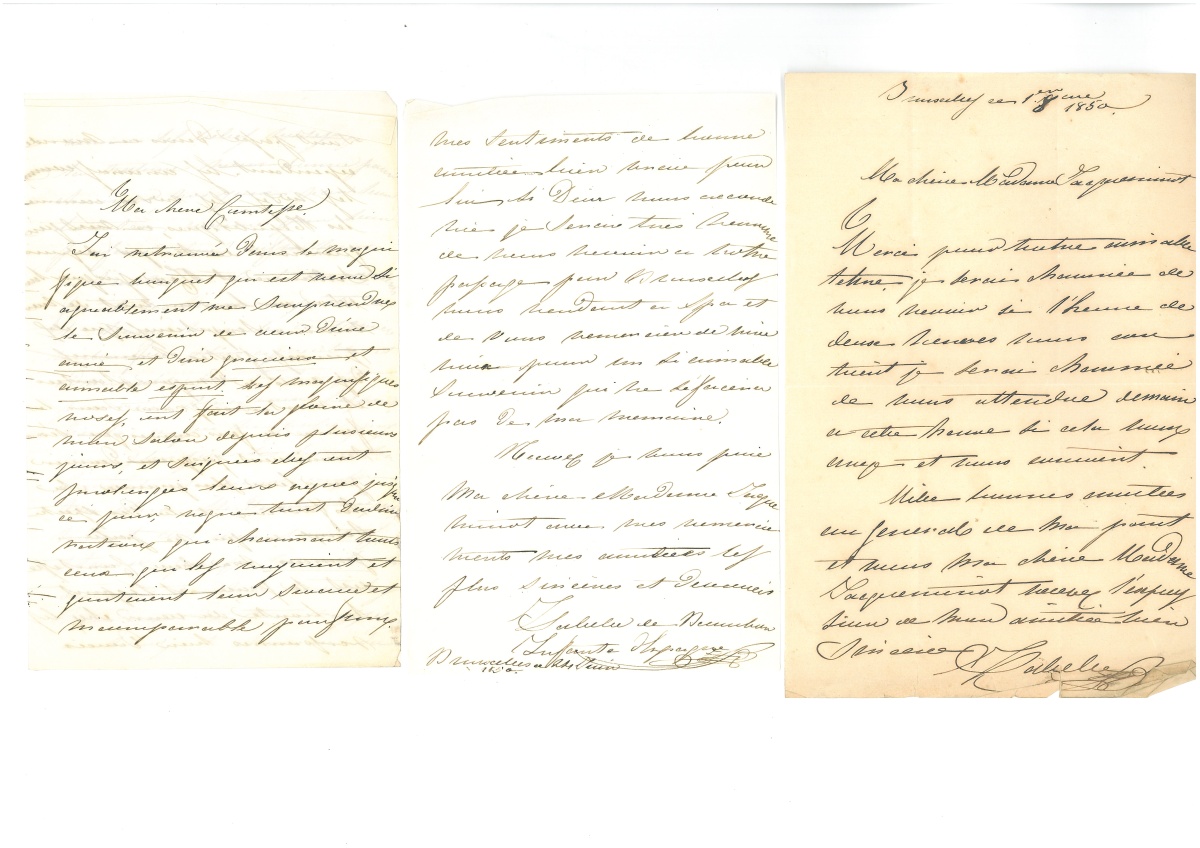 Ma chère Comtesse.
J'ai retrouvée dans le magni
fique bouquet qui est venu si
agreablement me surprendre
le souvenir de cœur d'une
amie et d'un gracieux et
aimable esprit les magnifiques
roses, ont fait la gloire de
mon salon depuis plusieurs
jours, et soignées elles ont
prolongées leurs regnes jusqu'a
ce jour, regne tout
qui charmant touts
ceux qui les voyaient et
goutaient leur suave et
incomparable parfum.
mes sentiments de bonne
amitiée bien vraie pour
lui si Dieu nous accorde
vie je serais tres heureuse
de vous revoir a votre
passage pour Bruxelles
vous rendant a Spa et
de vous remercier de vive
voix pour un si aimable
souvenir qui ne s'effacera
pas de ma memoire.
Recevez je vous prie
Ma chère Madame Jacque
minot avec mes remercie
ments mes amitiées les
plus sincères et
Isabelle de Bourbon
Infante d'Espagne
Bruxelles ce Juin
1850.
Bruxelles ce 1er 1850.
Ma chère Madame Jacqueminot
Merci pour votre aimable
lettre, je serais charmée de
vous revoir si l'heure de
deux heures vous con
vient je serai charmée
de vous attendre demain
a cette heure si cela vous
et vous convient.
Mille bonnes amitiées
au General de ma part
et vous ma chère Madame
Jacqueminot recevez l'expres
sion de mon amitiée bien
sincère Isabelle